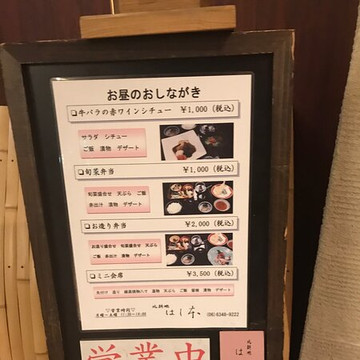 お昼のおしながき
❏牛バラの赤ワインシチュー ￥1,000（税込）
サラダ シチュー
ご飯 漬物 デザート
❏旬菜弁当 ￥1,000（税込）
旬菜盛合せ 天ぷら ご飯
赤出汁 漬物 デザート
❏お造り弁当 ￥2,000（税込）
お造り盛合せ 旬菜盛合せ 天ぷら
ご飯 赤出汁 漬物 デザート
❏ミニ会席 ￥3,500（税込）
▽営業時間▽
はし本
営業中
は